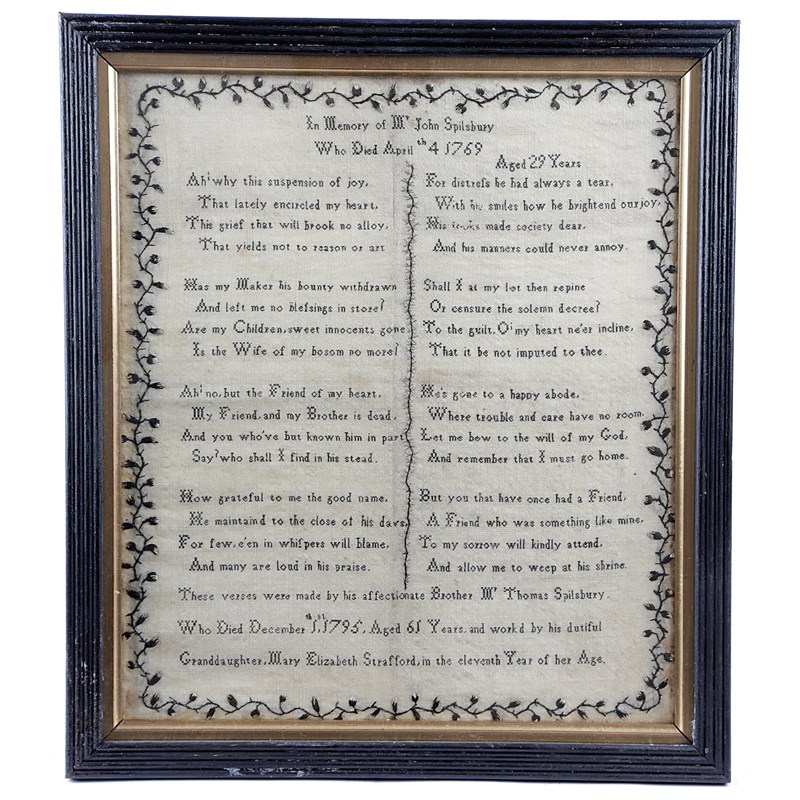 In Memory of Mr John Spilsbury
Who Died April th 4 1769
Aged 29 Years
Ah! why this suspension of joy,
That lately encircled my heart,
This grief that will brook no alloy,
That yields not to reason or art
Has my Maker his bounty withdrawn
And left me no blefsings in store?
Are my Children, sweet innocents gone
Is the Wife of my bosom no more?
Ah! no, but the Friend of my heart,
My Friend, and my Brother is dead,
And you who've but known him in part
Say? who shall I find in his stead.
How grateful to me the good name,
He maintaind to the close of his days
For few, e'en in whifpers will blame,
And many are loud in his praise.
For distrefs he had always a tear,
With his smiles how he brightend our joy,
His looks made society dear,
And his manners could never annoy.
Shall I at my lot then repine
Or censure the solemn decree?
To the guilt, O! my heart ne'er incline,
That it be not imputed to thee.
He's gone to a happy abode,
Where trouble and care have no room,
Let me bow to the will of my God,
And remember that I must go home.
But you that have once had a Friend,
A Friend who was something like mine,
To my sorrow will kindly attend,
And allow me to weep at his shrine.
These verses were made by his affectionate Brother Mr Thomas Spilsbury,
Who Died December 1st 1795, Aged 61 Years, and work'd by his dutiful
Granddaughter, Mary Elizabeth Strafford, in the eleventh Year of her Age.